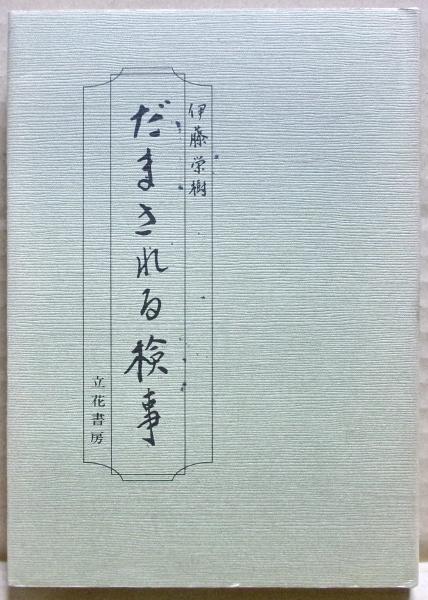 伊藤栄樹
だまされる検事
立花書房